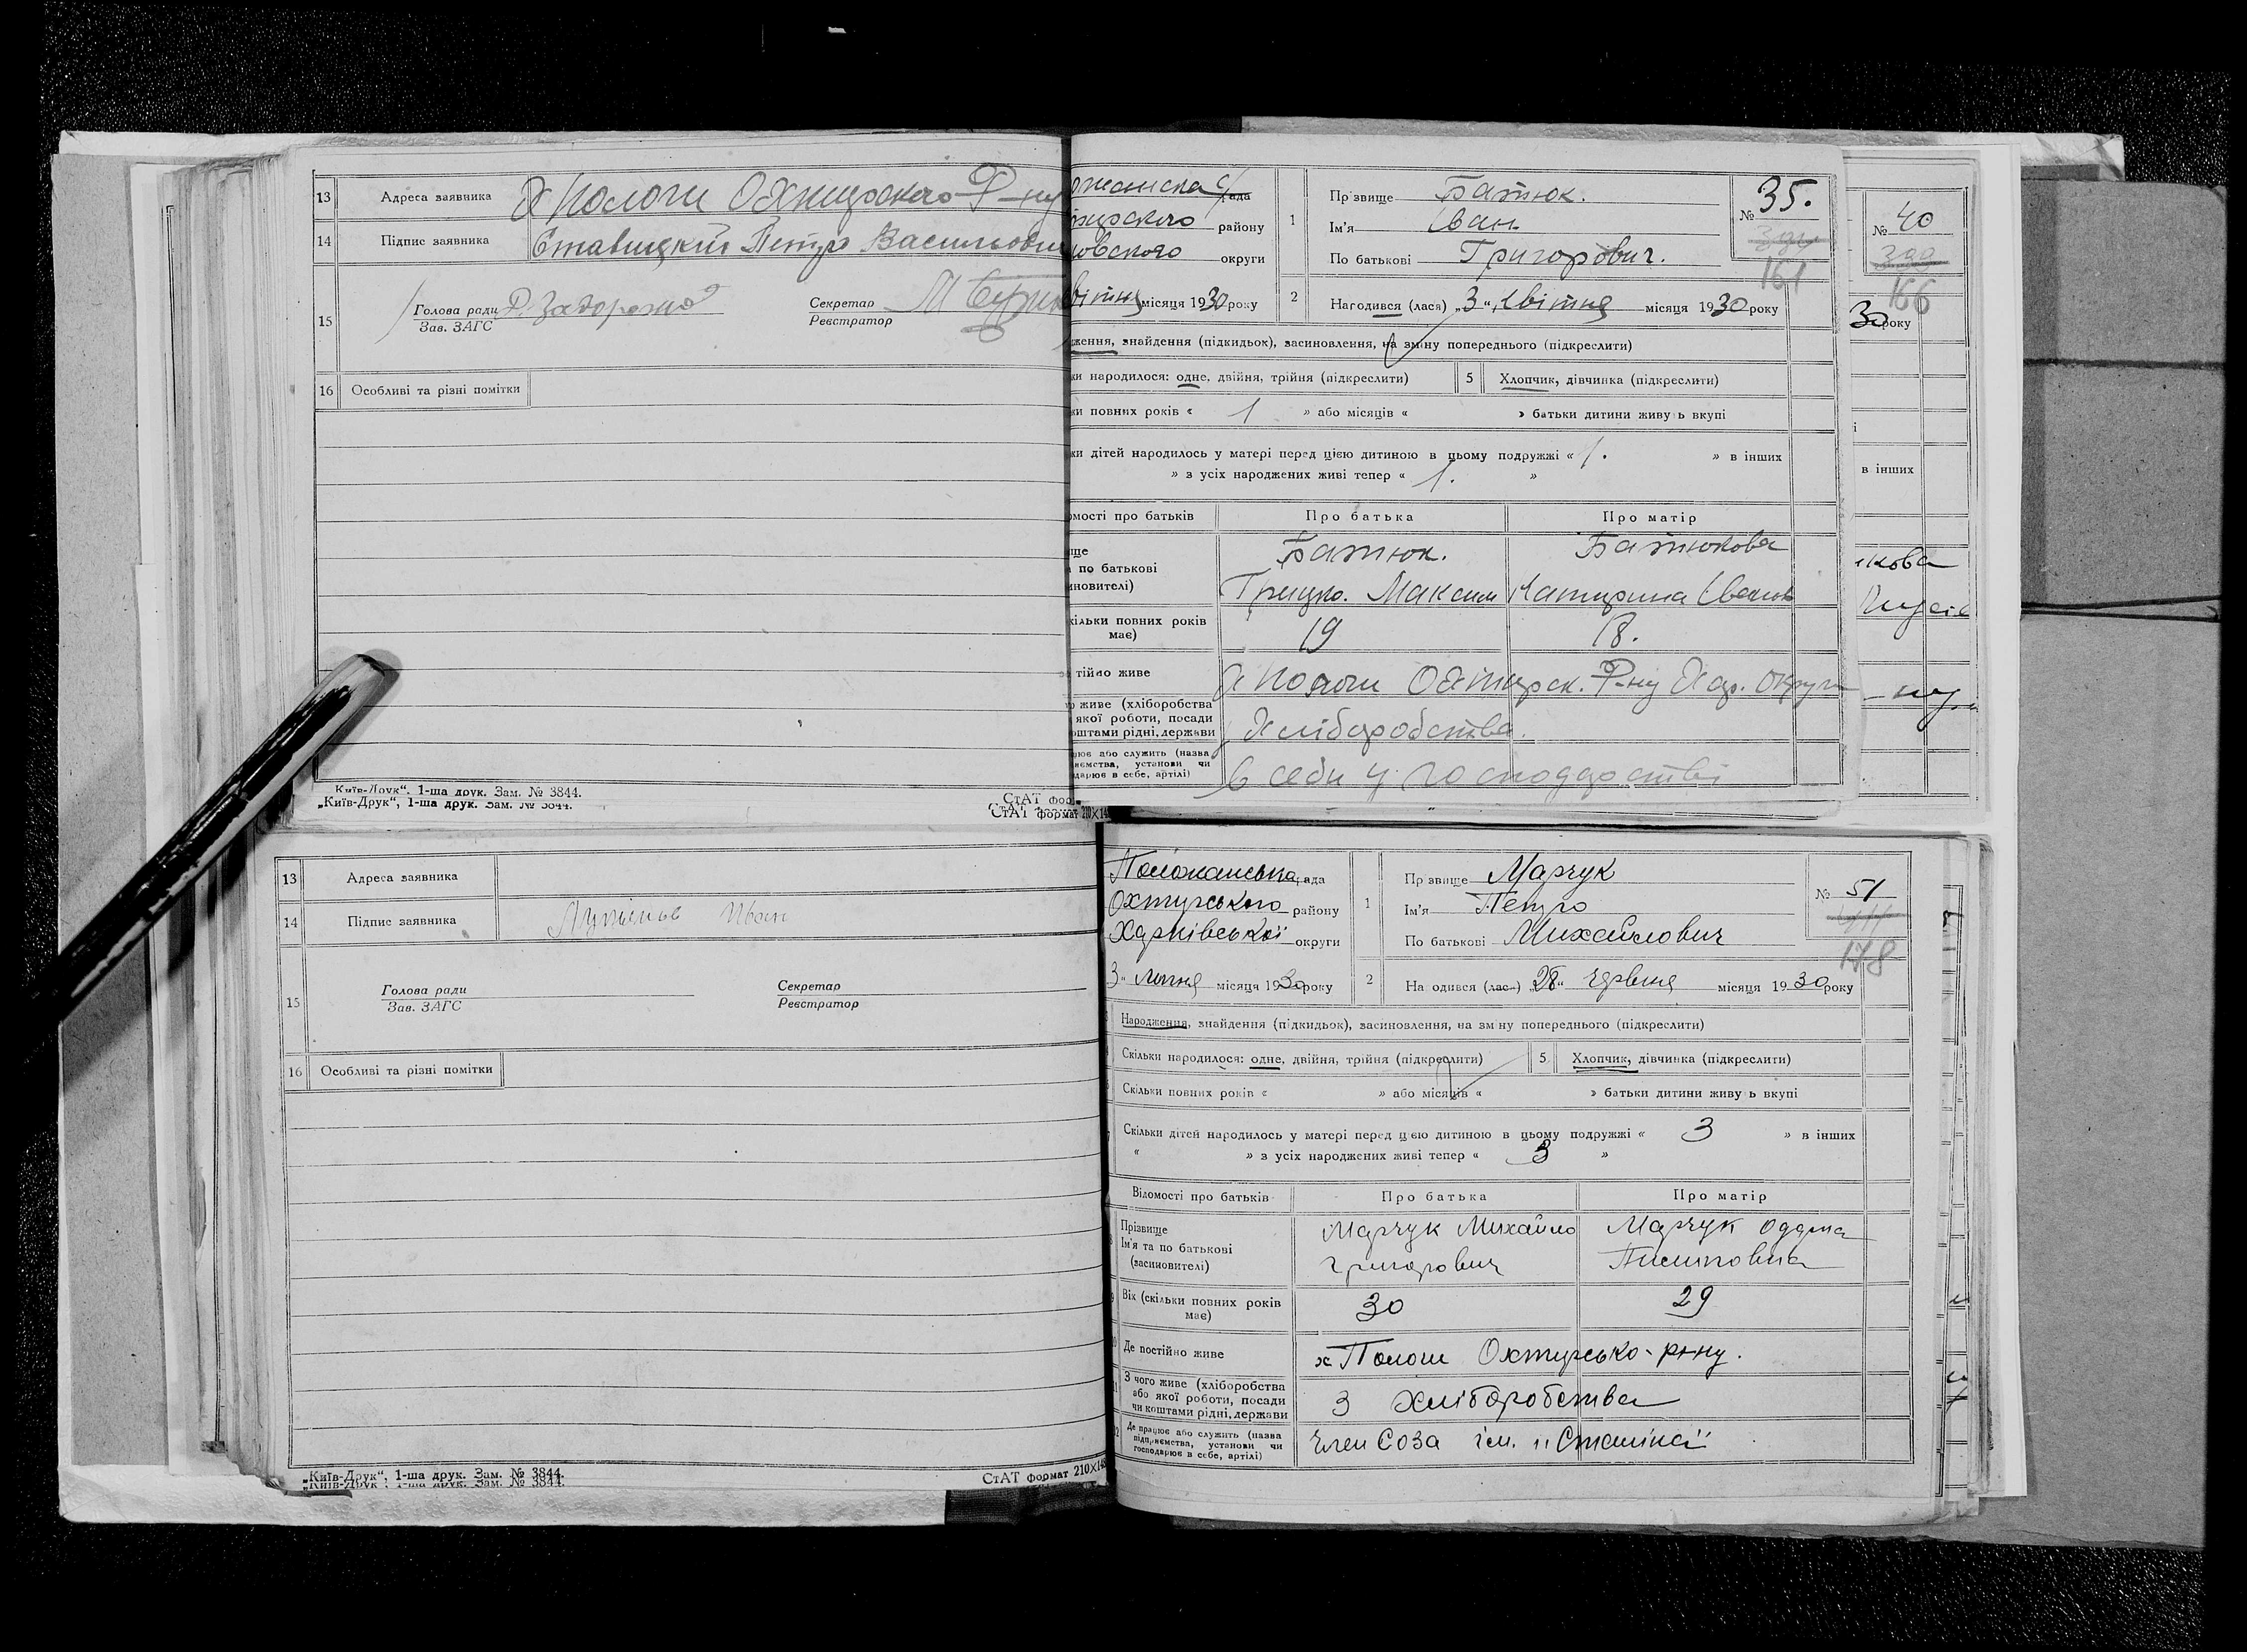 13 Адреса заявника х Пологи Охтирского Р-ну
14 Підпис заявника Ставицкий Петро Васильови
15 Голова ради Р. Задорожа Секретар
Зав. ЗАГС Реєстратор
16 Особливі та різні помітки
„Київ-Друк“, 1-ша друк. Зам. № 3844.
„Київ-Друк“, 1-ша друк. Зам. № 3844.
СтАТ фор
СтАТ формат 210×14
ожанска с/рада
тирского району
ковского округи
вітня місяця 1930 року
1 Прізвище Батюк.
Ім'я Іван
По батькові Григорович.
№ 35.
161
2 Народився (лася) „3“ Квітня місяця 1930 року
ження, знайдення (підкидьок), засиновлення, на зміну попереднього (підкреслити)
ки народилося: одне, двійня, трійня (підкреслити) 5 Хлопчик, дівчинка (підкреслити)
ки повних років « 1 » або місяців « » батьки дитини живуть вкупі
ки дітей народилось у матері перед цією дитиною в цьому подружжі « 1. » в інших
» з усіх народжених живі тепер « 1. »
омості про батьків Про батька Про матір
ище Батюк. Батюкова
по батькові Грицко. Максим Катирина Іванов
иновителі)
кільки повних років має) 19 18.
тійно живе х Пологи Охтирск. Р-ну Хар. Округи
живе (хліборобства
якої роботи, посади
оштами рідні, держави Хліборобства.
ює або служить (назва
иємства, установи чи
дарює в себе, артілі) в себи у господарстві
№ 40
399
166
30 року
в інших
кова
ну
13 Адреса заявника
14 Підпис заявника Іван
15 Голова ради Секретар
Зав. ЗАГС Реєстратор
16 Особливі та різні помітки
„Київ-Друк“, 1-ша друк. Зам. № 3844.
„Київ-Друк“, 1-ша друк. Зам. № 3844.
СтАТ формат 210×148
Положанська рада
Охтирського району
Харківської округи
3“ липня місяця 1930 року
1 Прізвище Марчук
Ім'я Петро
По батькові Михайлович
№ 51
178
2 Народився (лас-) „28“ червня місяця 1930 року
Народження, знайдення (підкидьок), засиновлення, на зміну попереднього (підкреслити)
Скільки народилося: одне, двійня, трійня (підкреслити) 5 Хлопчик, дівчинка (підкреслити)
Скільки повних років « » або місяців « » батьки дитини живуть вкупі
Скільки дітей народилось у матері перед цією дитиною в цьому подружжі « 3 » в інших
« » з усіх народжених живі тепер « 3 »
Відомості про батьків Про батька Про матір
Прізвище Марчук Михайло Марчук Одарка
Ім'я та по батькові Григорович
(засиновителі)
Вік (скільки повних років має) 30 29
Де постійно живе х Пологи Охтирсько-р-ну.
З чого живе (хліборобства
або якої роботи, посади
чи коштами рідні, держави З хліборобства
Де працює або служить (назва
підприємства, установи чи
господарює в себе, артілі) Член Соза ім. „Сталіна“